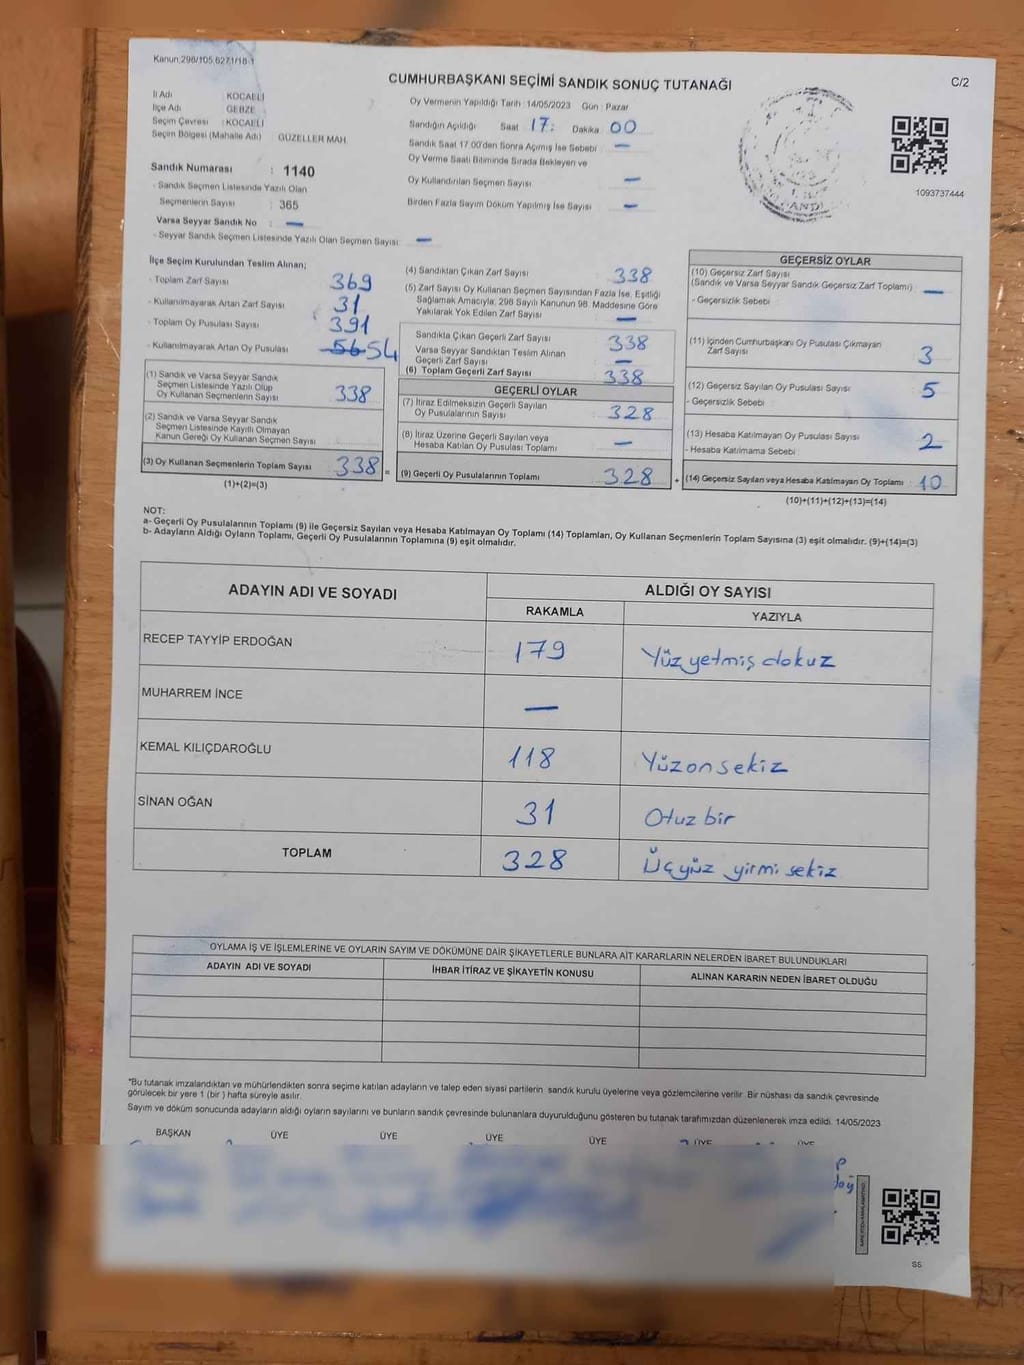 Kanun,298/105,6271/18-1
CUMHURBAŞKANI SEÇİMİ SANDIK SONUÇ TUTANAĞI
C/2
İl Adı KOCAELİ
İlçe Adı GEBZE
Seçim Çevresi : KOCAELİ
Seçim Bölgesi (Mahalle Adı) GÜZELLER MAH.
Sandık Numarası : 1140
- Sandık Seçmen Listesinde Yazılı Olan
Seçmenlerin Sayısı : 365
Varsa Seyyar Sandık No : —
- Seyyar Sandık Seçmen Listesinde Yazılı Olan Seçmen Sayısı: —
Oy Vermenin Yapıldığı Tarih : 14/05/2023 Gün : Pazar
Sandığın Açıldığı Saat 17: Dakika 00
Sandık Saat 17.00'den Sonra Açılmış İse Sebebi : —
Oy Verme Saati Bitiminde Sırada Bekleyen ve
Oy Kullandırılan Seçmen Sayısı : —
Birden Fazla Sayım Döküm Yapılmış İse Sayısı : —
1093737444
İlçe Seçim Kurulundan Teslim Alınan;
- Toplam Zarf Sayısı : 369
- Kullanılmayarak Artan Zarf Sayısı : 31
- Toplam Oy Pusulası Sayısı : 391
- Kullanılmayarak Artan Oy Pusulası : 56 54
(1) Sandık ve Varsa Seyyar Sandık
Seçmen Listesinde Yazılı Olup
Oy Kullanan Seçmenlerin Sayısı : 338
(2) Sandık ve Varsa Seyyar Sandık
Seçmen Listesinde Kayıtlı Olmayan
Kanun Gereği Oy Kullanan Seçmen Sayısı :
(3) Oy Kullanan Seçmenlerin Toplam Sayısı : 338 =
(1)+(2)=(3)
(4) Sandıktan Çıkan Zarf Sayısı : 338
(5) Zarf Sayısı Oy Kullanan Seçmen Sayısından Fazla İse, Eşitliği
Sağlamak Amacıyla, 298 Sayılı Kanunun 98. Maddesine Göre
Yakılarak Yok Edilen Zarf Sayısı : —
Sandıkta Çıkan Geçerli Zarf Sayısı : 338
Varsa Seyyar Sandıktan Teslim Alınan
Geçerli Zarf Sayısı : —
(6) Toplam Geçerli Zarf Sayısı : 338
GEÇERLİ OYLAR
(7) İtiraz Edilmeksizin Geçerli Sayılan
Oy Pusulalarının Sayısı : 328
(8) İtiraz Üzerine Geçerli Sayılan veya
Hesaba Katılan Oy Pusulası Toplamı : —
(9) Geçerli Oy Pusulalarının Toplamı : 328 +
GEÇERSİZ OYLAR
(10) Geçersiz Zarf Sayısı
(Sandık ve Varsa Seyyar Sandık Geçersiz Zarf Toplamı) : —
- Geçersizlik Sebebi :
(11) İçinden Cumhurbaşkanı Oy Pusulası Çıkmayan
Zarf Sayısı : 3
(12) Geçersiz Sayılan Oy Pusulası Sayısı : 5
- Geçersizlik Sebebi :
(13) Hesaba Katılmayan Oy Pusulası Sayısı : 2
- Hesaba Katılmama Sebebi :
(14) Geçersiz Sayılan veya Hesaba Katılmayan Oy Toplamı : 10
(10)+(11)+(12)+(13)=(14)
NOT:
a- Geçerli Oy Pusulalarının Toplamı (9) ile Geçersiz Sayılan veya Hesaba Katılmayan Oy Toplamı (14) Toplamları, Oy Kullanan Seçmenlerin Toplam Sayısına (3) eşit olmalıdır. (9)+(14)=(3)
b- Adayların Aldığı Oyların Toplamı, Geçerli Oy Pusulalarının Toplamına (9) eşit olmalıdır.
ADAYIN ADI VE SOYADI ALDIĞI OY SAYISI
RAKAMLA YAZIYLA
RECEP TAYYİP ERDOĞAN 179 Yüz yetmiş dokuz
MUHARREM İNCE —
KEMAL KILIÇDAROĞLU 118 Yüzonsekiz
SİNAN OĞAN 31 Otuz bir
TOPLAM 328 Üçyüz yirmi sekiz
OYLAMA İŞ VE İŞLEMLERİNE VE OYLARIN SAYIM VE DÖKÜMÜNE DAİR ŞİKAYETLERLE BUNLARA AİT KARARLARIN NELERDEN İBARET BULUNDUKLARI
ADAYIN ADI VE SOYADI İHBAR İTİRAZ VE ŞİKAYETİN KONUSU ALINAN KARARIN NEDEN İBARET OLDUĞU
*Bu tutanak imzalandıktan ve mühürlendikten sonra seçime katılan adayların ve talep eden siyasi partilerin sandık kurulu üyelerine veya gözlemcilerine verilir. Bir nüshası da sandık çevresinde
görülecek bir yere 1 (bir) hafta süreyle asılır.
Sayım ve döküm sonucunda adayların aldığı oyların sayılarını ve bunların sandık çevresinde bulunanlara duyurulduğunu gösteren bu tutanak tarafımızdan düzenlenerek imza edildi. 14/05/2023
BAŞKAN ÜYE ÜYE ÜYE ÜYE ÜYE ÜYE
S5